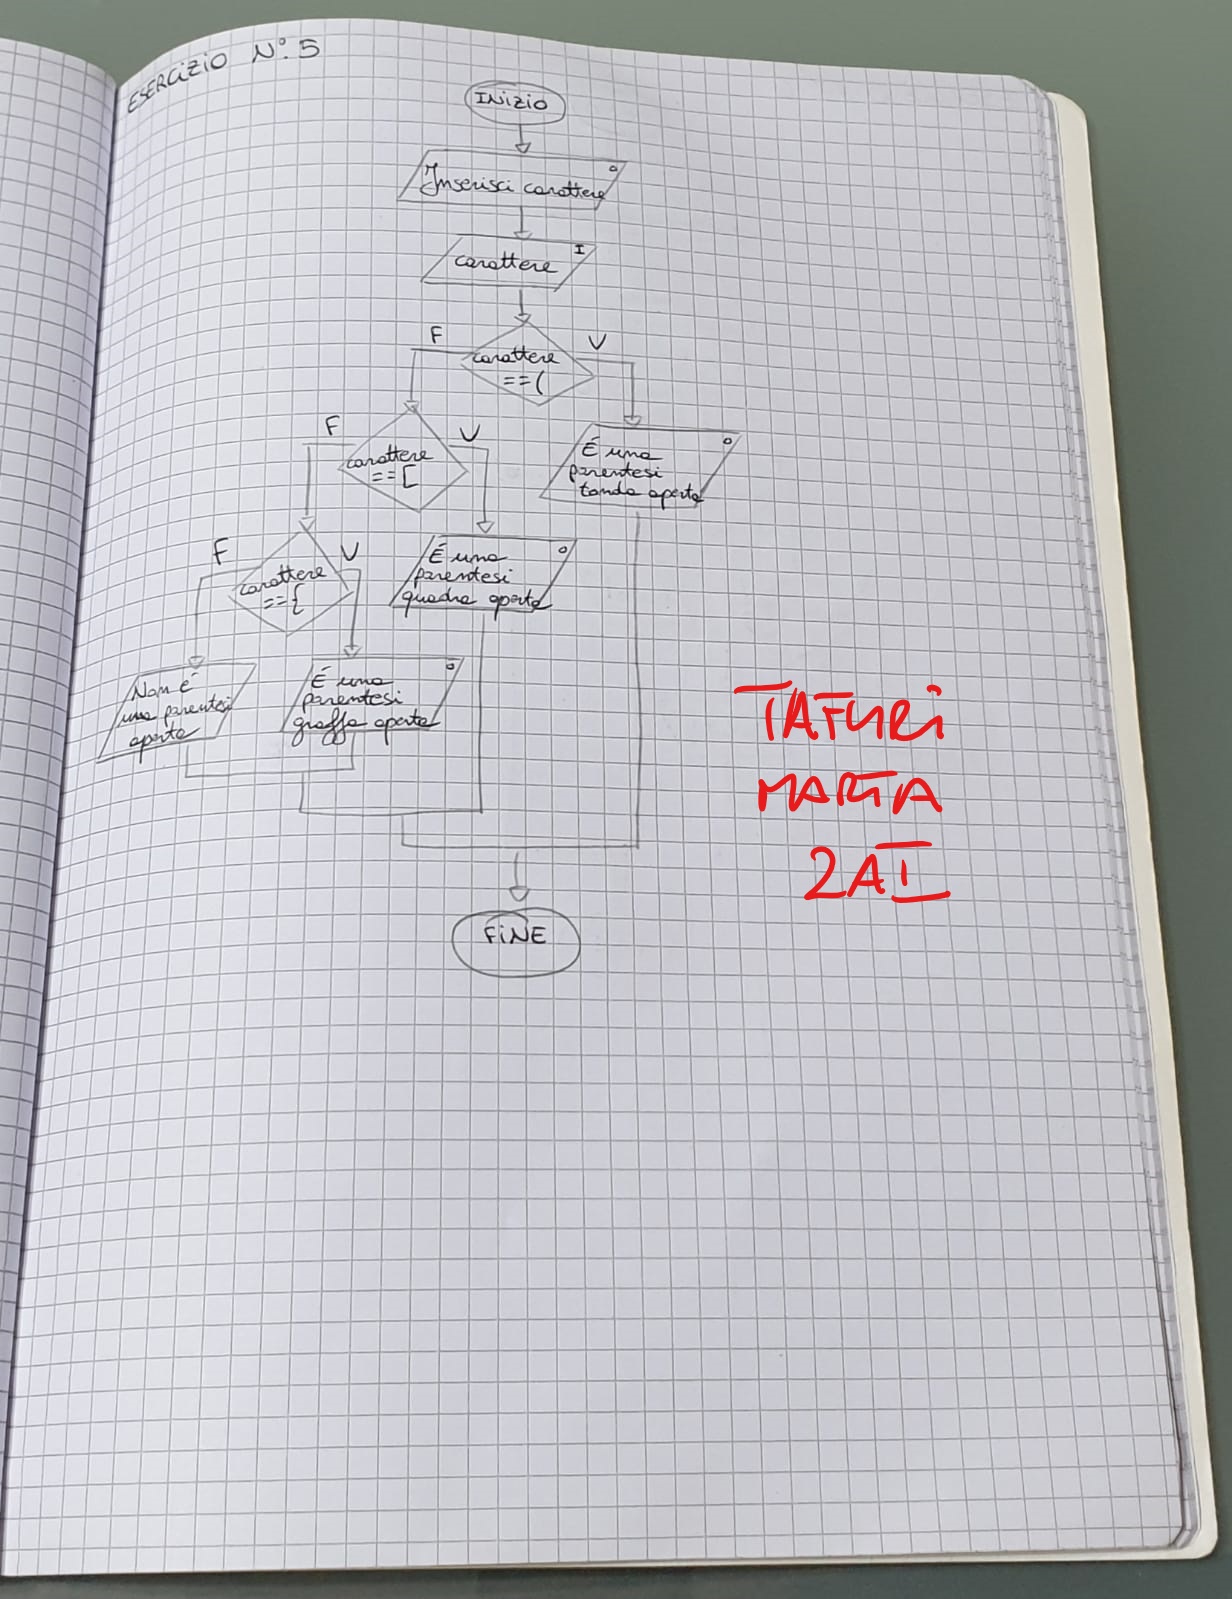 ESERCIZIO N°.5
INIZIO
Inserisci carattere
O
carattere
I
carattere
==(
F
V
carattere
==[
F
V
È una
parentesi
tonda aperta
O
carattere
=={
F
V
È una
parentesi
quadra aperta
O
Non è
una parentesi
aperta
È una
parentesi
graffa aperta
O
FINE
TAFURI
MARTA
2AI